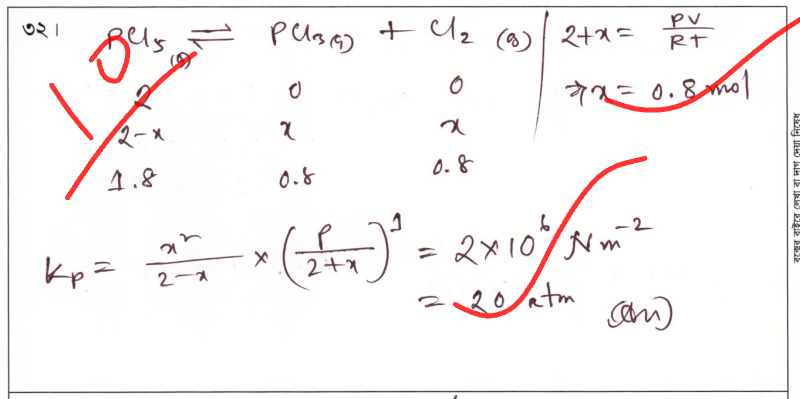 ৩২। PCl₅ (g) ⇌ PCl₃(g) + Cl₂ (g)
2 0 0
2-x x x
1.8 0.8 0.8
2+x = PV/RT
⇒ x = 0.8 mol
Kp = x²/(2-x) × (P/(2+x))¹ = 2×10⁶ Nm⁻²
= 20 atm (Ans)
10
বক্সের বাইরে লেখা বা দাগ দেয়া নিষেধ